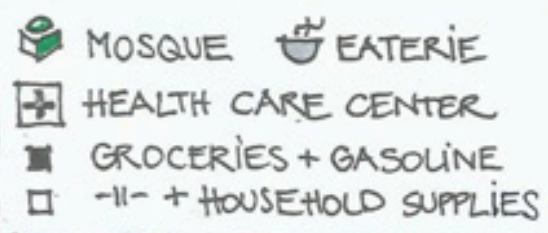 MOSQUE EATERIE
HEALTH CARE CENTER
GROCERIES + GASOLINE
-11- + HOUSEHOLD SUPPLIES